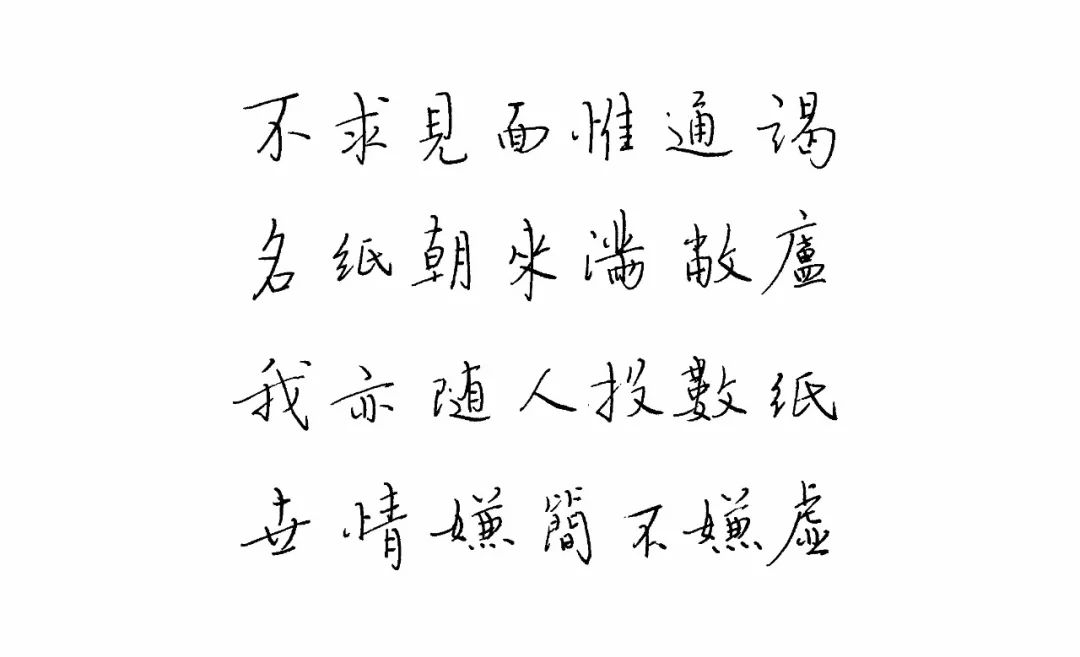 不求見面惟通謁
名紙朝來滿敝廬
我亦随人投數紙
世情嫌簡不嫌虛